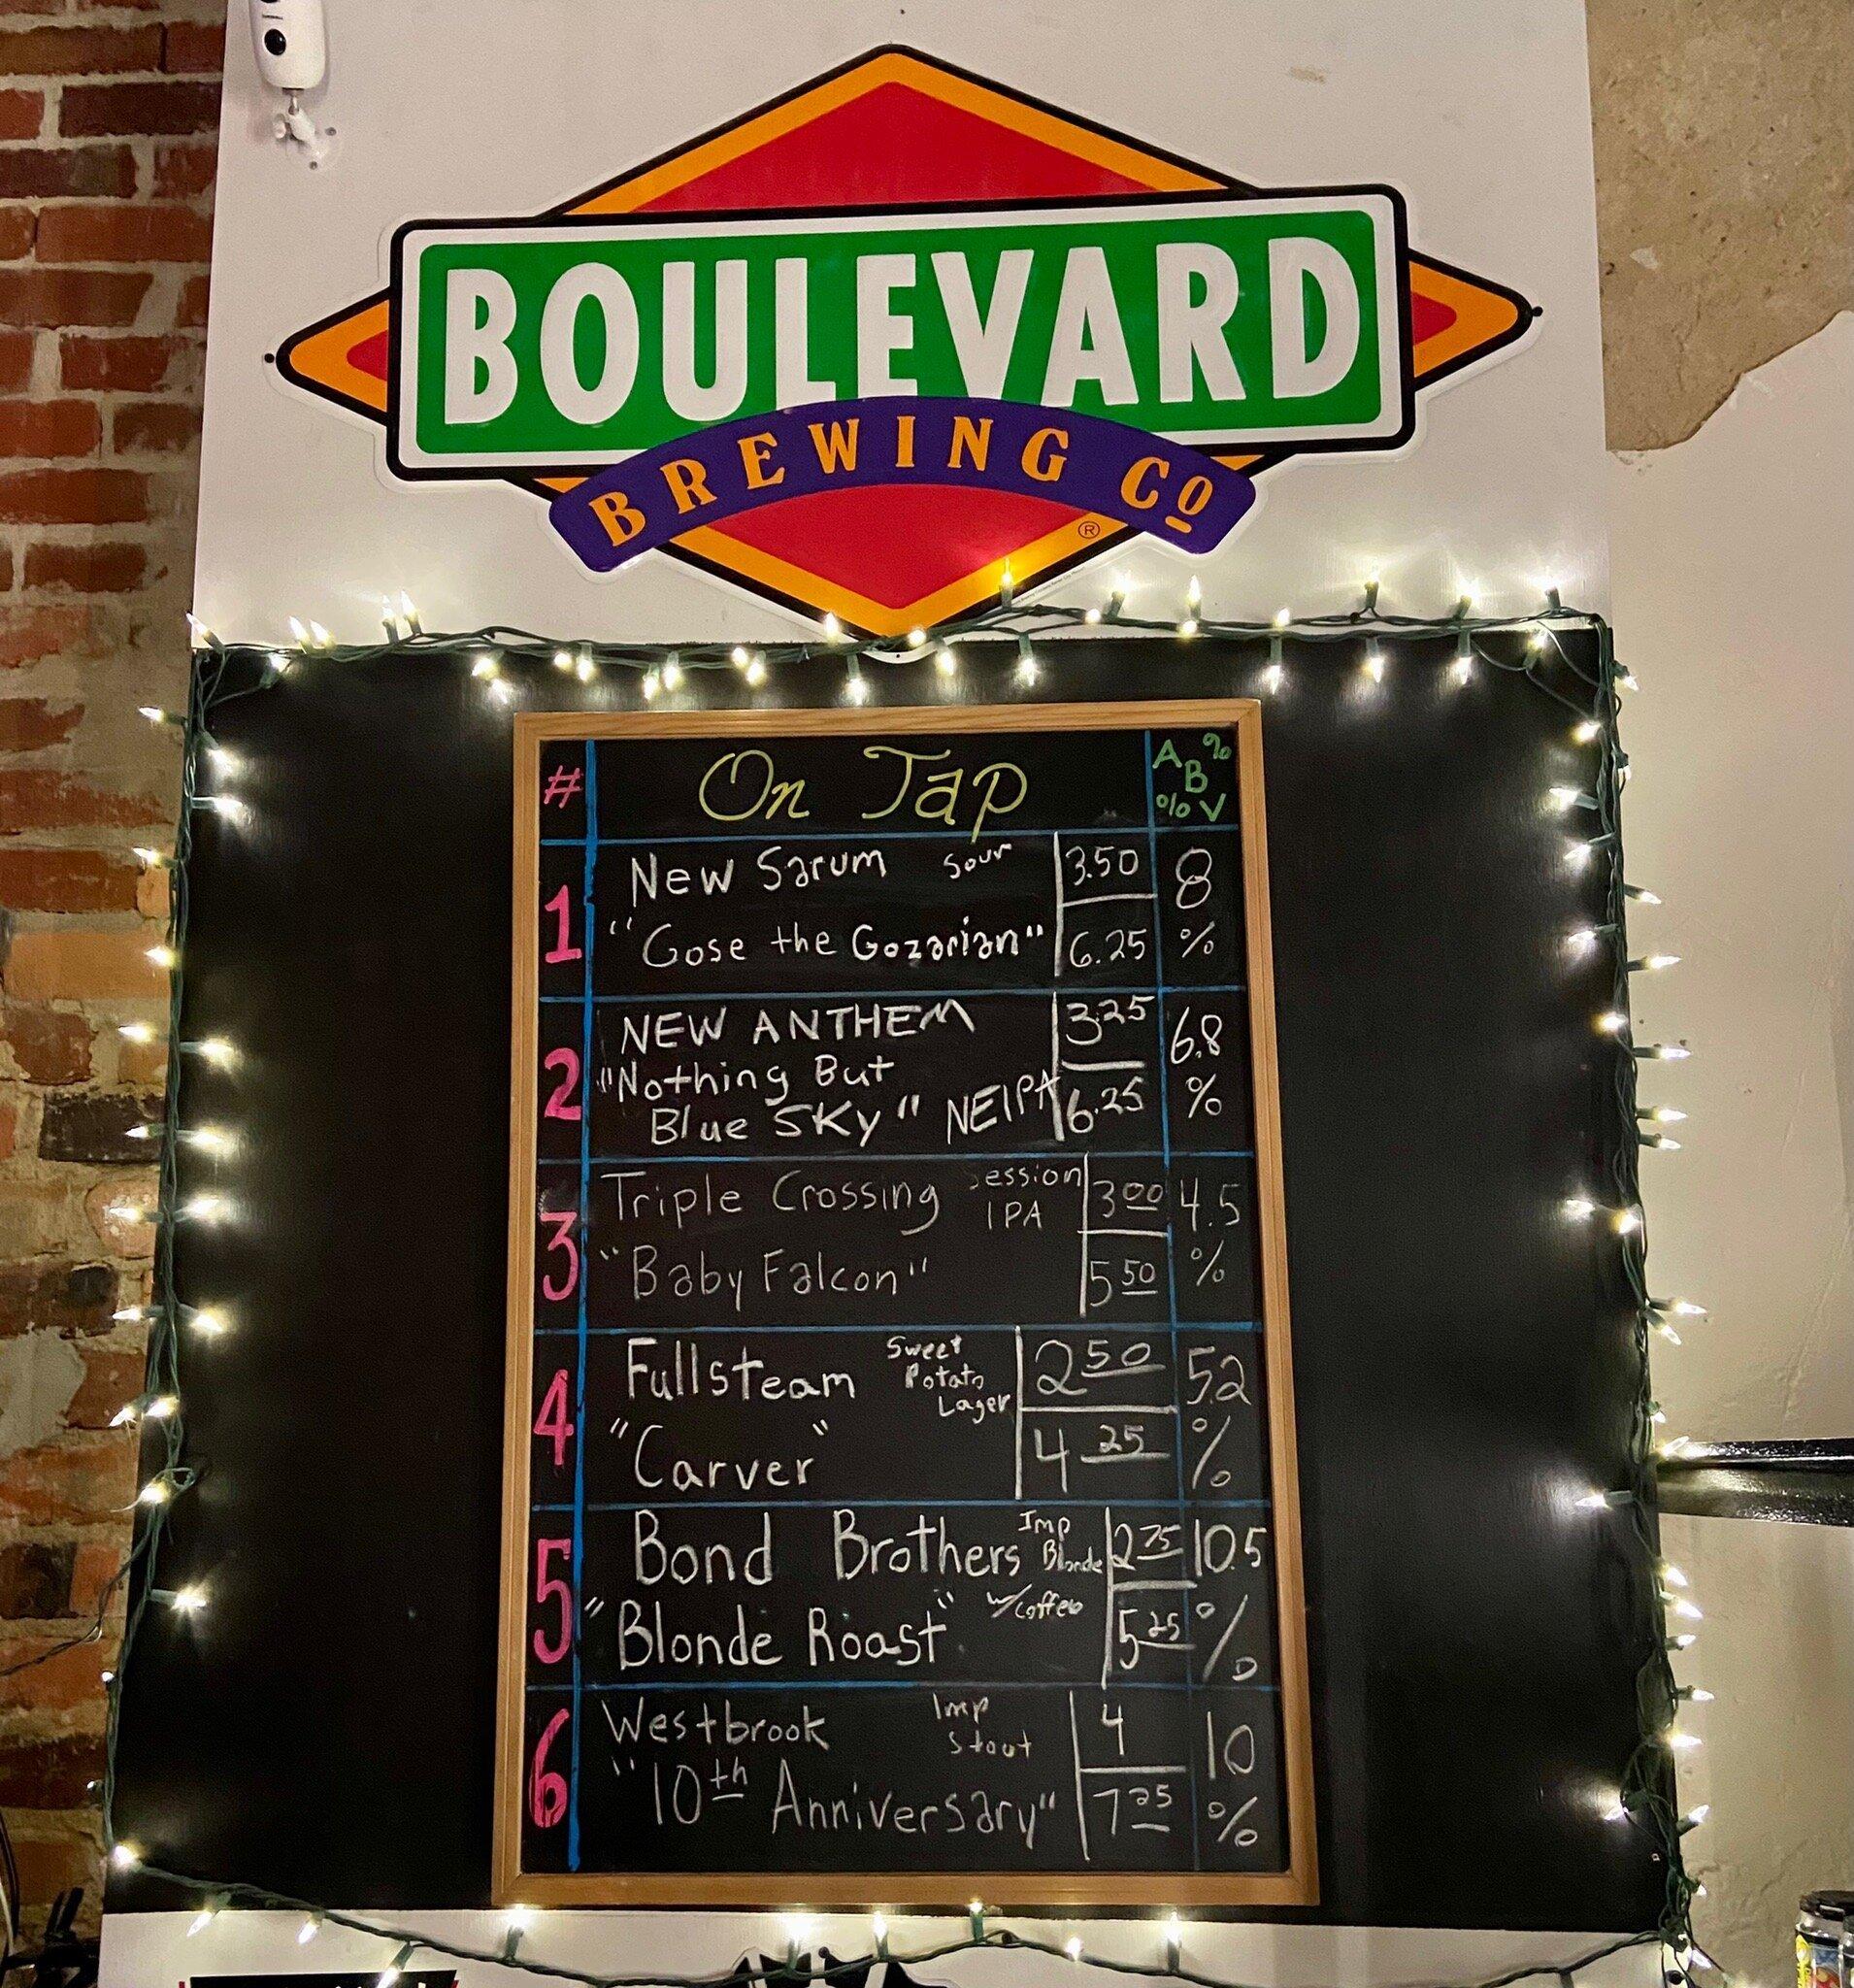 BOULEVARD
BREWING CO
®
# On Tap A%B%V
1 New Sarum Sour 3.50 8
"Gose the Gozarian" 6.25 %
2 NEW ANTHEM 3.25 6.8
"Nothing But
Blue SKy" NEIPA 6.25 %
3 Triple Crossing Session IPA 3.00 4.5
"Baby Falcon" 5.50 %
4 Fullsteam Sweet Potato Lager 2.50 5.2
"Carver" 4.25 %
5 Bond Brothers Imp Blonde 2.75 10.5
"Blonde Roast" w/coffee 5.25 %
6 Westbrook Imp Stout 4 10
"10th Anniversary" 7.25 %